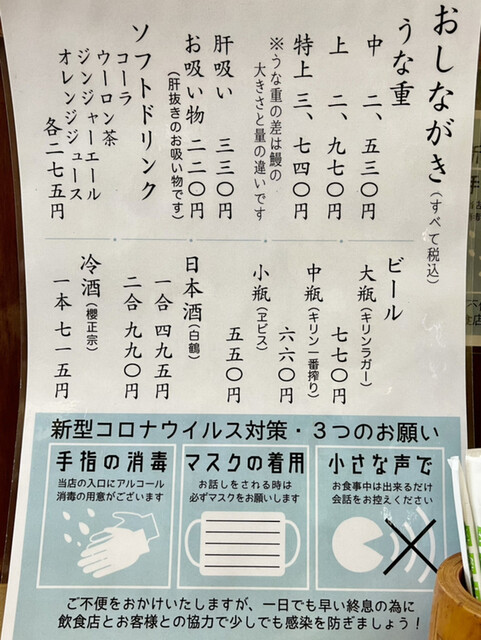 おしながき(すべて税込)
うな重
中 二、五三〇円
上 二、九七〇円
特上 三、七四〇円
※うな重の差は鰻の
大きさと量の違いです
肝吸い 三三〇円
お吸い物 二二〇円
(肝抜きのお吸い物です)
ソフトドリンク
コーラ
ウーロン茶
ジンジャーエール
オレンジジュース
各二七五円
ビール
大瓶(キリンラガー)
七七〇円
中瓶(キリン一番搾り)
六六〇円
小瓶(ヱビス)
五五〇円
日本酒(白鶴)
一合 四九五円
二合 九九〇円
冷酒(櫻正宗)
一本 七一五円
新型コロナウイルス対策・3つのお願い
手指の消毒
当店の入口にアルコール
消毒の用意がございます
マスクの着用
お話しをされる時は
必ずマスクをお願いします
小さな声で
お食事中は出来るだけ
会話をお控えください
ご不便をおかけいたしますが、一日でも早い終息の為に
飲食店とお客様との協力で少しでも感染を防ぎましょう！